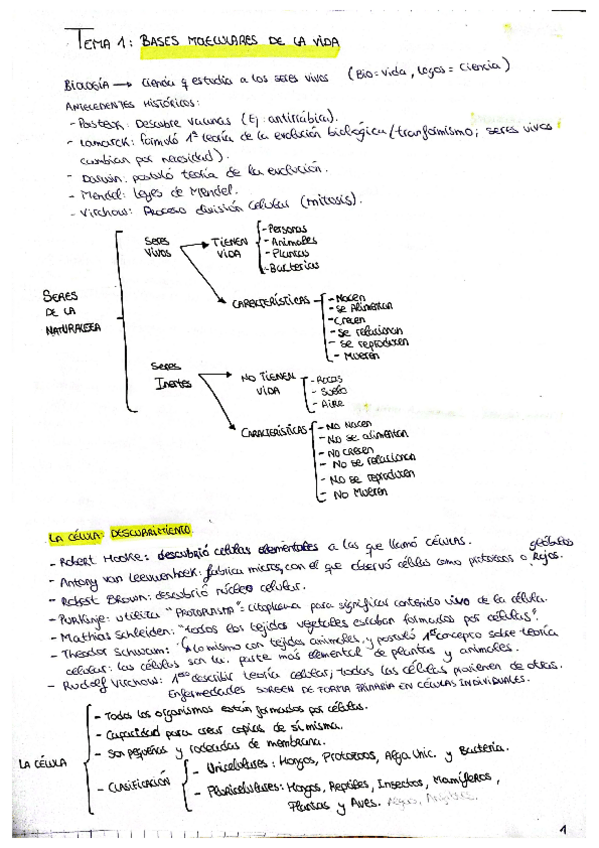 TEMA 1: BASES MOLECULARES DE LA VIDA
BIOLOGÍA → Ciencia q estudia a los seres vivos (Bio = vida, logos = Ciencia)
ANTECEDENTES HISTÓRICOS:
- Pasteur: Descubre vacunas (Ej: antirrábica).
- Lamarck: formuló 1ª teoría de la evolución biológica (tranformismo; seres vivos
cambian por necesidad).
- Darwin: postuló teoría de la evolución.
- Mendel: leyes de Mendel.
- Virchow: Proceso división celular (mitosis).
SERES DE LA NATURALEZA
SERES VIVOS
TIENEN VIDA
- Personas
- Animales
- Plantas
- Bacterias
CARACTERÍSTICAS
- Nacen
- Se Alimentan
- Crecen
- Se relacionan
- Se reproducen
- Mueren
SERES Inertes
NO TIENEN VIDA
- Rocas
- Suelo
- Aire
CARACTERÍSTICAS
- No Nacen
- No se alimentan
- No crecen
- No se relacionan
- No se reproducen
- No Mueren
LA CÉLULA: DESCUBRIMIENTO.
- Robert Hooke: descubrió celdillas elementales a las que llamó células.
- Antony van Leeuwenhoek: fabrica micros, con el que observó células como protozoos o glóbulos Rojos.
- Robert Brown: descubrió núcleo celular.
- Purkinje: utiliza "PROTOPLASMA" = citoplasma para significar contenido vivo de la célula.
- Mathias Schleiden: "todos los tejidos vegetales estaban formados por células".
- Theodor Schwann: lo mismo con tejidos animales, y postuló 1er concepto sobre teoría
celular: las células son la parte más elemental de plantas y animales.
- Rudolf Virchow: 1ero describir teoría celular; todas las células provienen de otras.
Enfermedades SURGEN DE FORMA PRIMARIA EN CÉLULAS INDIVIDUALES.
LA CÉLULA
- Todos los organismos están formados por células.
- Capacidad para crear copias de sí misma.
- Son pequeñas y rodeadas de membrana.
- CLASIFICACIÓN
- Unicelulares: Hongos, Protozoos, Alga Unic. y Bacteria.
- Pluricelulares: Hongos, Reptiles, Insectos, Mamíferos,
Plantas y Aves.
1